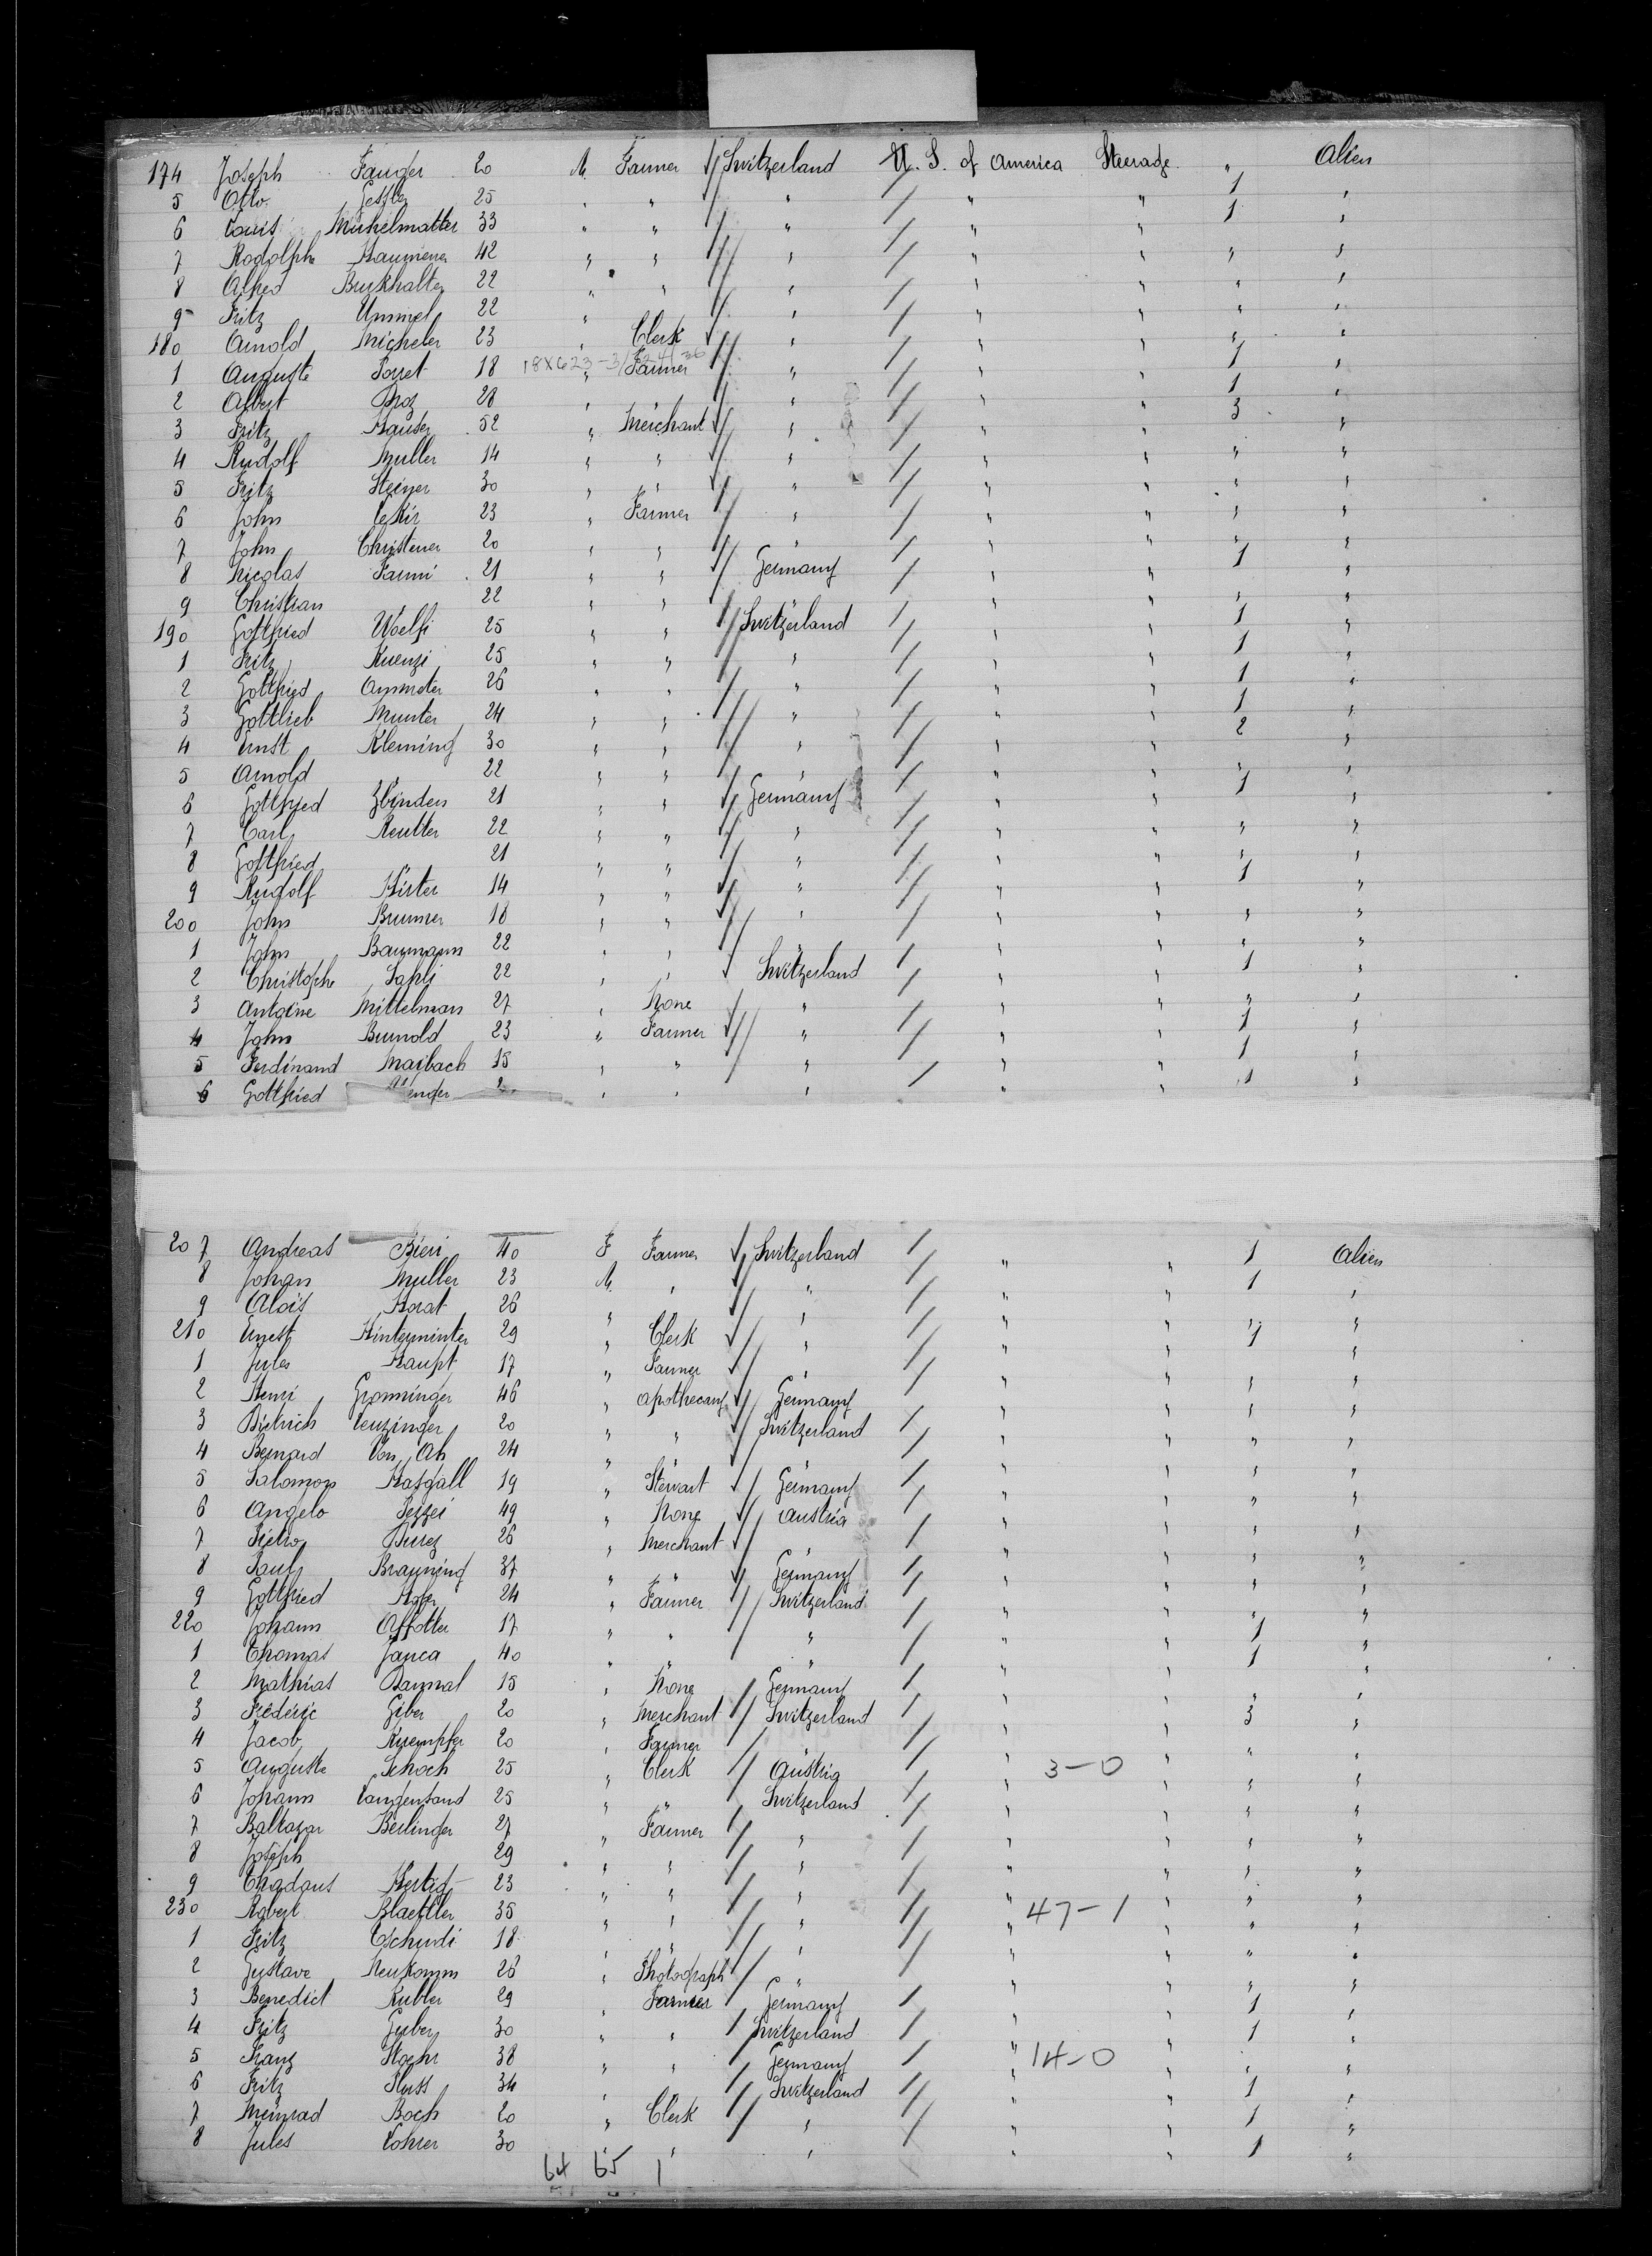 174 Joseph Fauger 20 M. Farmer Switzerland U. S. of America Steerage " Alien
5 Otto Gessler 25 " " " " " 1 "
6 Louis Muhelmatter 33 " " " " " 1 "
7 Rodolphe 42 " " " " " " "
8 Alfred Burkhalter 22 " " " " " " "
9 Fritz Ummel 22 " " " " " "
180 Arnold Micheler 23 " Clerk " " " " "
1 Auguste Porret 18 18X623-3/ " Farmer " " " 1 "
2 Albert Droz 28 " " " " 1 "
3 Fritz Hauser 52 " Merchant " " " 3 "
4 Rudolf Muller 14 " " " " " " "
5 Fritz Steiner 30 " " " " " " "
6 John 23 " Farmer " " " " "
7 John Christener 20 " " " " " " "
8 Nicolas Fanni 21 " " Germany " " 1 "
9 Christian " 22 " " " " " " "
190 Gottfried Woelfi 25 " " Switzerland " " 1 "
1 Fritz Kuenzi 25 " " " " " 1 "
2 Gottfried Ammeter 26 " " " " " 1 "
3 Gottlieb Munter 24 " " " " " 1 "
4 Ernst Kleming 30 " " " " " 2 "
5 Arnold " 22 " " " " " " "
6 Gottfried Zbinden 21 " " Germany " " 1 "
7 Carl Reutter 22 " " " " " " "
8 Gottfried " 21 " " " " " " "
9 Rudolf Hirter 14 " " " " " 1 "
200 John Brunner 18 " " " " " " "
1 John Baumann 22 " " " " " "
2 Christophe Sahli 22 " " Switzerland " " 1 "
3 Antoine Mittelman 27 " None " " " " "
4 John Brunold 23 " Farmer " " " 1 "
5 Ferdinand Marbach 15 " " " " " 1 "
6 Gottfried " " " " " 1 "
207 Andreas Bieri 40 F Farmer Switzerland " " 1 Alien
8 Johan Muller 23 M. " " " " 1 "
9 Alois Horat 26 " " " " " " "
210 Ernest Hinterminter 29 " Clerk " " " 1 "
1 Jules Haupt 17 " Farmer " " " "
2 Henri Gronninger 46 " Apothecary Germany " " " "
3 Dietrich Leuzinger 20 " " Switzerland " " " "
4 Bernard Von Ah 24 " " " " " " "
5 Salomon Hasgall 19 " Stewart Germany " " " "
6 Angelo Pezzei 49 " None Austria " " " "
7 Pietro 26 " Merchant " " " " "
8 Paul Brauning 37 " " Germany " " " "
9 Gottfried Hofer 24 " Farmer Switzerland " " " "
220 Johann Affolter 17 " " " " " 1 "
1 Thomas Janca 40 " " " " " 1 "
2 Mathias Dannal 15 " None Germany " " " "
3 Fréderic Giber 20 " Merchant Switzerland " " 3 "
4 Jacob Kuempfer 20 " Farmer " " " " "
5 Auguste Schoch 25 " Clerk Austria " 3-0 " " "
6 Johann Langensand 25 " " Switzerland " " " "
7 Baltazar Berlinger 27 " Farmer " " " " "
8 Joseph " 29 " " " " " " "
9 Thadaus Hertig 23 " " " " " " "
230 Robert Blaettler 35 " " " " 47-1 " " "
1 Fritz Tschudi 18 " " " " " " "
2 Gustave Neukomm 26 " Photograph " " " " "
3 Benedict Kubler 29 " Farmer Germany " " 1 "
4 Fritz Gerber 30 " " Switzerland " " 1 "
5 Franz Stoehr 38 " " Germany " 14-0 " " "
6 Fritz 34 " " Switzerland " " 1 "
7 Meinrad Boch 20 " Clerk " " " 1 "
8 Jules Lohrer 30 " " " " " 1 "
64 65 1